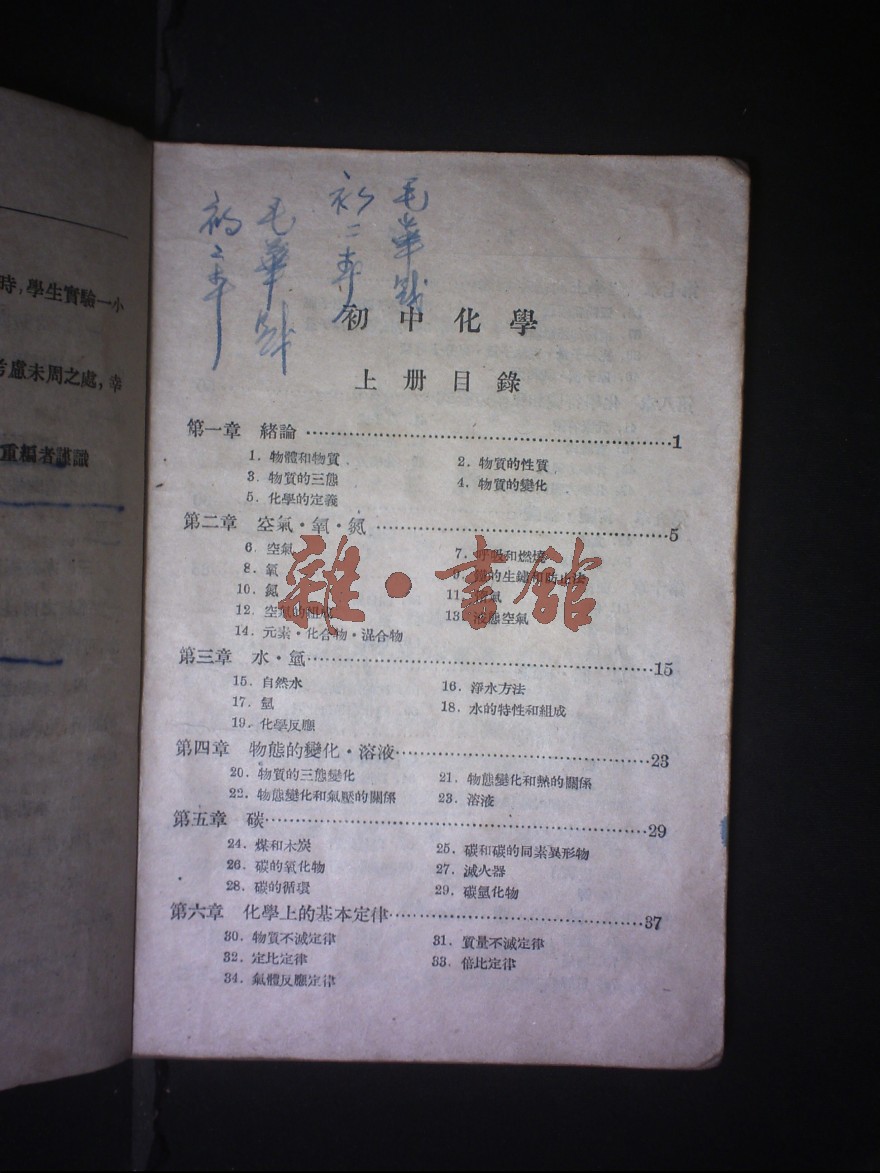 時,學生實驗一小
考慮未周之處,幸
重編者謹識
毛華
初二
毛華
初中化學
上册目錄
第一章 緒論……1
1. 物體和物質 2. 物質的性質
3. 物質的三態 4. 物質的變化
5. 化學的定義
第二章 空氣·氧·氮……5
6. 空氣 7. 呼吸和燃燒
8. 氧 9. 鐵的生鏽和防止法
10. 氮 11. 氣
12. 空氣的組成 13. 液態空氣
14. 元素·化合物·混合物
雜·書館
第三章 水·氫……15
15. 自然水 16. 淨水方法
17. 氫 18. 水的特性和組成
19. 化學反應
第四章 物態的變化·溶液……23
20. 物質的三態變化 21. 物態變化和熱的關係
22. 物態變化和氣壓的關係 23. 溶液
第五章 碳……29
24. 煤和木炭 25. 碳和碳的同素異形物
26. 碳的氧化物 27. 滅火器
28. 碳的循環 29. 碳氫化物
第六章 化學上的基本定律……37
30. 物質不滅定律 31. 質量不滅定律
32. 定比定律 33. 倍比定律
34. 氣體反應定律